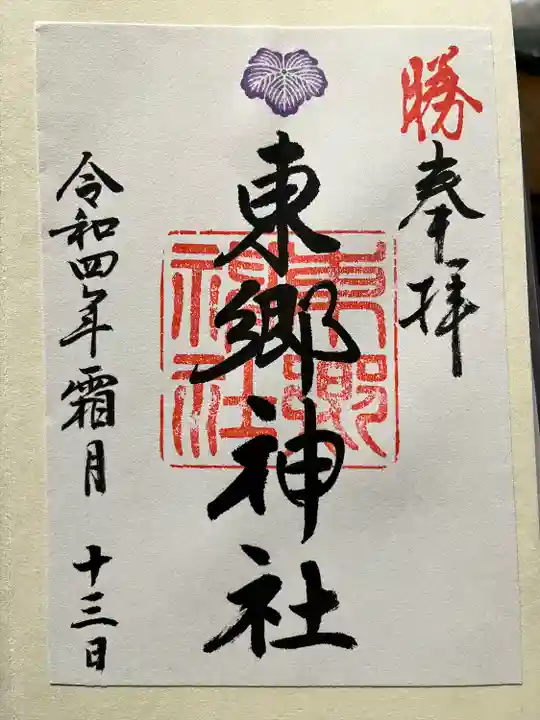 勝
奉拝
東郷神社
東郷
神社
令和四年霜月 十三日